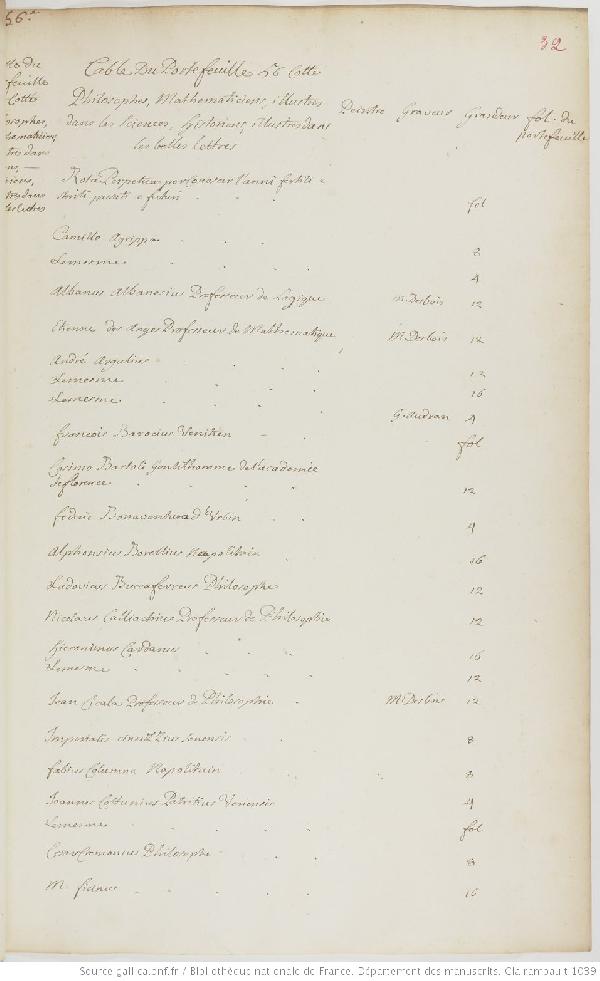 56.e
32
Table Du Portefeuille 56 Cotte
Philosophes, Mathematiciens, illustres
dans les Sciences, historiens, illustres dans
les belles lettres
Peintre Graveur Grandeur fol. du
portefeuille
fol
Camillo Agrippa 8
Lemesme 4
Albanus Albanesius Professeur de Logique M. Desbois 12
Etienne des Anges Professeur de Mathematique M. Desbois 12
André Argolus 12
Lemesme 16
Lemesme G. Audran 4
francois Barocius Venitien fol
Cosimo Bartoli Gentilhomme de l'academie
de florence 12
federic Bonaventura d'Urbin 4
Alphonsius Borellius Neapolitain 16
Ludovicus Philosophe 12
Nicolaus Calliachius Professeur de Philosophie 12
hieronimus Cardanus 16
Lemesme 12
Jean Cicala Professeur de Philosophie M. Desbois 12
8
fabius Columna Napolitain 8
Joannes Cottunius Patritius Venensis 4
Lemesme fol
Cesar Cremonius Philosophe 8
M. 16
Source gallica.bnf.fr / Bibliothèque nationale de France. Département des manuscrits. Clairambault 1039